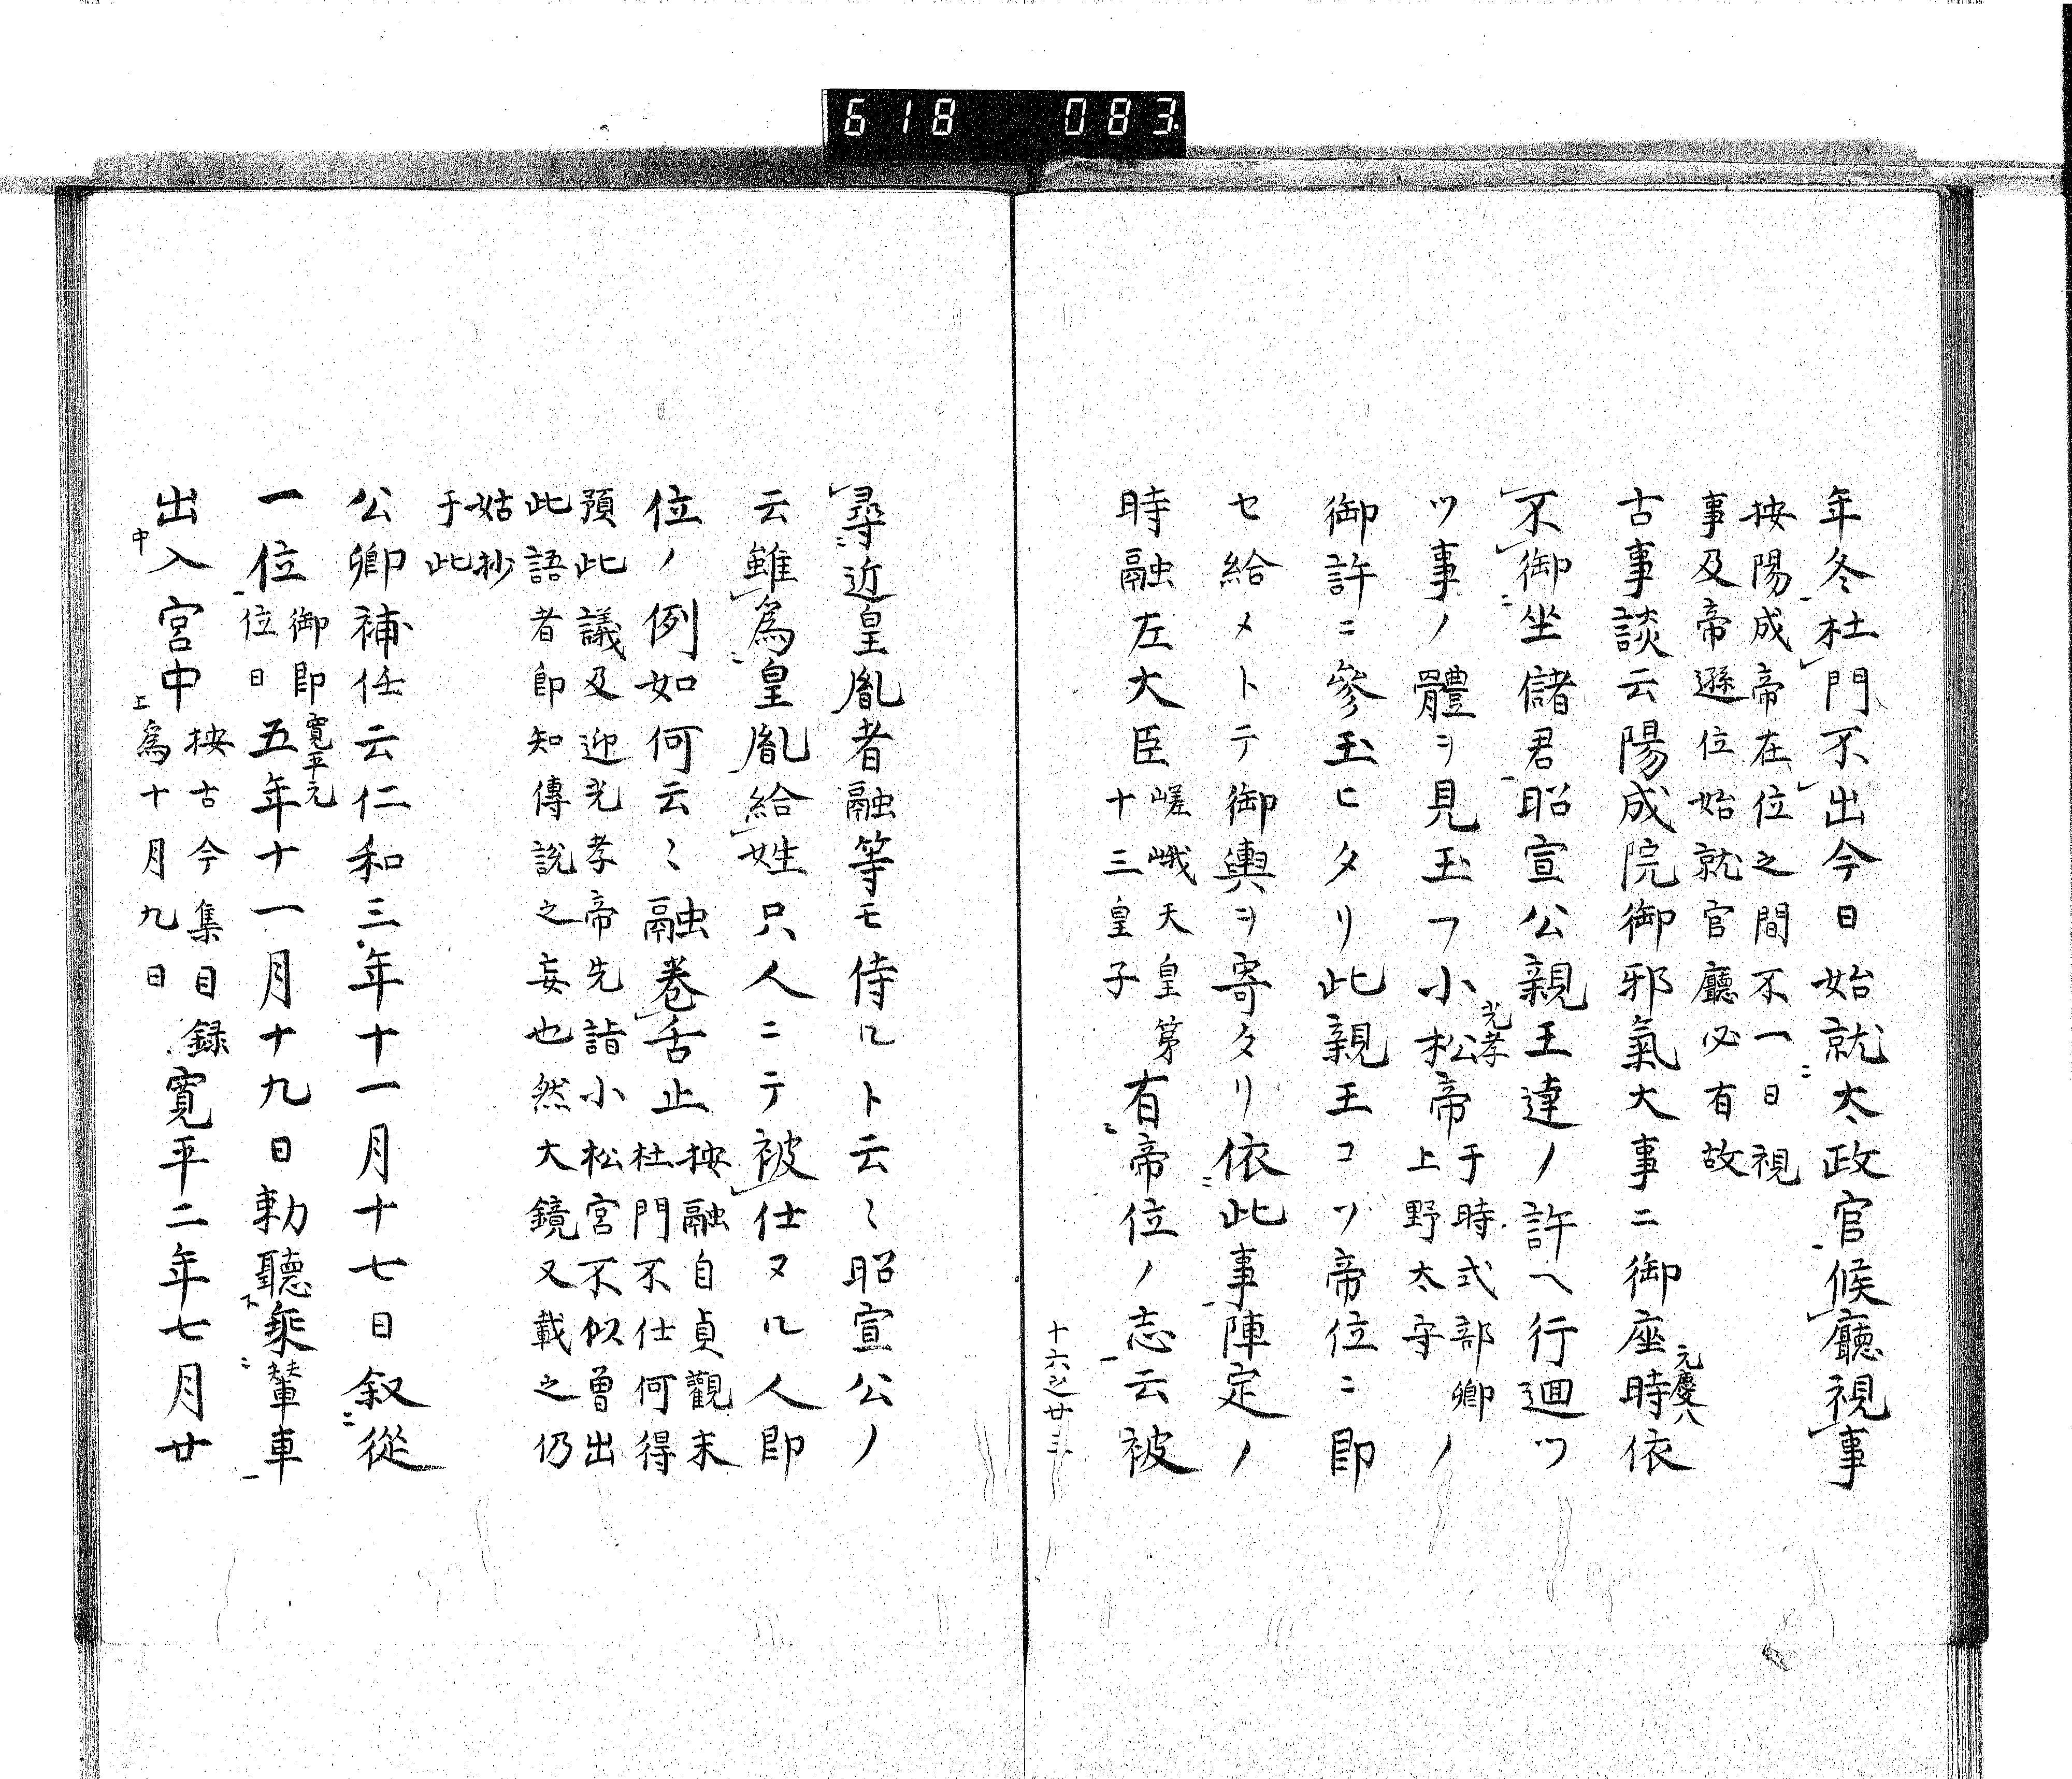 618 083.
年冬杜門不出今日始就太政官候廳視事
按陽成帝在位之間不一日視
事及帝遜位始就官廳必有故
古事談云陽成院御邪氣大事ニ御座時依
元慶八
不御坐儲君昭宣公親王達ノ許ヘ行廻ツ
ツ事ノ體ヲ見玉フ小松帝
光孝
于時式部卿
上野太守
ノ
御許ニ參玉ヒタリ此親王コソ帝位ニ即
セ給メトテ御輿ヲ寄タリ依此事陣定ノ
時融左大臣
嵯峨天皇第
十三皇子
有帝位ノ志云被
十六之廿三
尋近皇胤者融等モ侍ルト云〻昭宣公ノ
云雖為皇胤給姓只人ニテ被仕ヌル人即
位ノ例如何云〻融卷舌止
按融自貞觀末
杜門不仕何得
預此議及迎光孝帝先詣小松宮不似曾出
此語者即知傳説之妄也然大鏡又載之仍
姑抄
于此
公卿補任云仁和三年十一月十七日叙從
一位
御即
位日
寛平元
五年十一月十九日勅聽乘輦車
出入宮中
按古今集目録
為十月九日
寛平二年七月廿